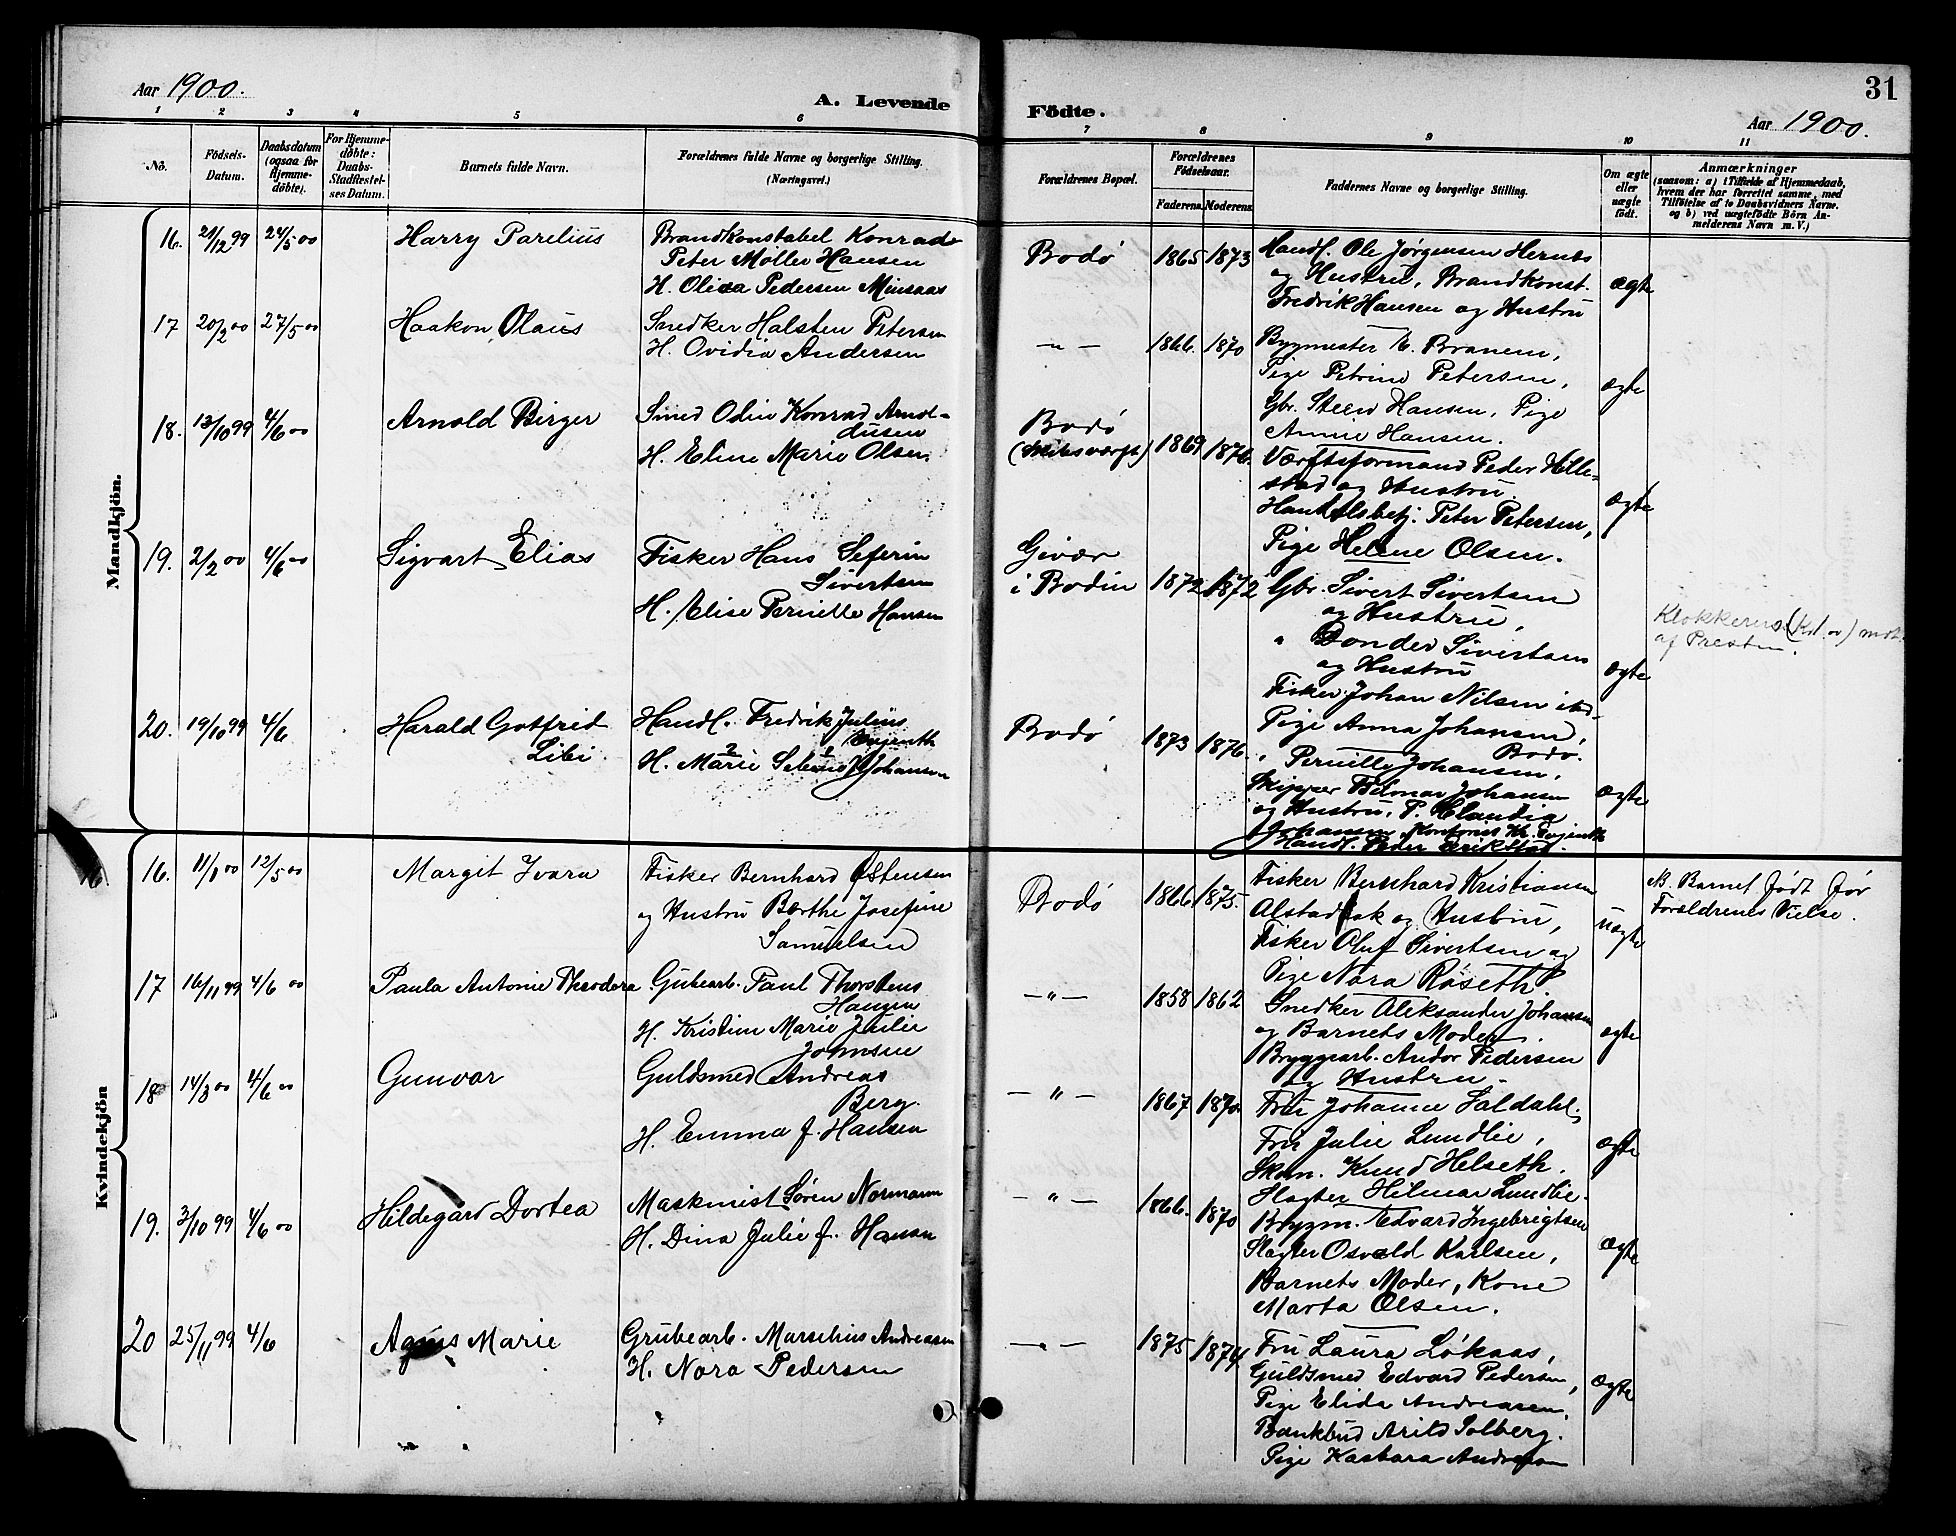 Aar 1900.
A. Levende
1 2 3 4 5 6
No.
Födsels-
Datum.
Daabsdatum
(ogsaa for
Hjemme-
döbte).
For Hjemme-
döbte:
Daabs-
Stadfæstel-
ses Datum.
Barnets fulde Navn.
Forældrenes fulde Navne og borgerlige Stilling.
(Næringsvei.)
Mandkjön.
16. 21/12 99 24/5 00 Harry Parelius
Brandkonstabel Konrad
Peter Möller Hansen
H. Olava Pedersen Minsaas
17 20/2 00 27/5 00 Haakon Olaus
Snedker Halsten Petersen
H. Ovidia Andersen
18. 13/10 99 4/6 00 Arnold Birger
Smed Odin Konrad Arnol-
dusen
H. Eline Marie Olsen.
19. 2/2 00 4/6 00 Sigvart Elias
Fisker Hans Seferin
Sivertsen
H. Elise Pernille Hansen
20. 19/10 99 4/6 Harald Gotfrid
Libi.
Handl. Fredrik Julius
Evjenth
H. Marie Selma J. Johansen
Kvindekjön
16. 11/1 00 12/5 00 Margit Ivara
Fisker Bernhard Østensen
og Hustru Berthe Josefine
Samuelsen
17 16/11 99 4/6 00 Paula Antonie Theodora
Gubearb. Paul Thorstens
Haugen
H. Kristine Marie Julie
Jörnsen
18 14/3 00 4/6 00 Gunvor
Guldsmed Andreas
Berg.
H. Emma f. Hansen
19. 3/10 99 4/6 00 Hildegard Dortea
Maskinist Sören Normann
H. Dina Julie f. Hansen
20 25/11 99 4/6 Agnes Marie
Grubearb. Marselius Andreassen
H. Nora Pedersen
31
Födte.
Aar 1900.
7 8 9 10 11
Forældrenes Bopæl.
Forældrenes
Födselsaar.
Faderens. Moderens.
Faddernes Navne og borgerlige Stilling.
Om ægte
eller
uægte
födt.
Anmærkninger
(saasom: a) i Tilfælde af Hjemmedaab,
hvem der har forrettet samme, med
Tilföielse af to Daabsvidners Navne,
og b) ved uægtefödte Börn An-
melderens Navn m. V.)
Bodø 1865 1873
Handl. Ole Jørgensen Hernes
og Hustru, Brandkonst.
Fredrik Hansen og Hustru
ægte
— " — 1866. 1870
Bygmester
Pige Petrine Petersen,
Gbr. Steen Hansen, Pige
Annie Hansen.
ægte
Bodø
1869 1876.
Værftsformand Peder Hille-
stad og Hustru.
Handelsbetj. Peter Petersen,
Pige Helene Olsen.
ægte
Givær
i Bodin 1872 1872
Gbr. Sivert Sivertsen
og Hustru,
" Donder Sivertsen
og Hustru
Fisker Johan Nilsen
ægte
Klokkeren
af Presten.
Bodø 1873 1876.
Pige Anna Johansen,
Bodø.
" Pernille Johansen,
Skipper Hilmar Johansen
og Hustru, P. Claudia
Johansen, Kontorist Kr. Evjenth
Handl. Peder Erikstad.
ægte
Bodø 1866. 1875.
Fisker Bernhard Kristiansen
Alstadhak og Hustru,
Fisker Oluf Sivertsen og
Pige Nora Røseth
uægte
NB. Barnet født før
Forældrenes Vielse.
— " — 1858 1862
Snedker Aleksander Johansen
og Barnets Moder.
Bryggearb. Andor Pedersen
og Hustru.
ægte
— " — 1867 1870.
Fru Johanne Saldahl,
Fru Julie Lundlie,
Skom. Knud Helseth.
Slagter Hilmar Lundlie.
ægte
— " — 1866. 1870
Bygm. Edvard Ingebrigtsen
Slagter Osvald Karlsen,
Barnets Moder, Kone
Marta Olsen.
ægte
— " — 1875 1874
Fru Laura Løkaas,
Guldsmed Edvard Pedersen,
Pige Elida Andreasen.
Bankbud Arild Solberg.
Pige Kasbara Andreasen
ægte